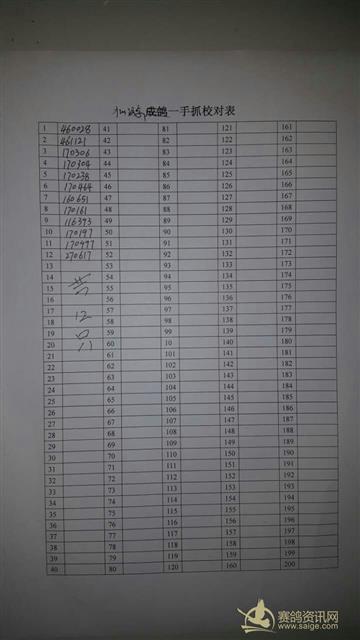 成鸽一手抓校对表
1 460028 41 81 121 161
2 461121 42 82 122 162
3 170306 43 83 123 163
4 170304 44 84 124 164
5 170238 45 85 125 165
6 170464 46 86 126 166
7 160651 47 87 127 167
8 170161 48 88 128 168
9 116393 49 89 129 169
10 170197 50 90 130 170
11 170497 51 91 131 171
12 270617 52 92 132 172
13 53 93 133 173
14 54 94 134 174
15 共 55 95 135 175
16 56 96 136 176
17 12 57 97 137 177
18 58 98 138 178
19 只 59 99 139 179
20 60 10 140 180
21 61 101 141 181
22 62 102 142 182
23 63 103 143 183
24 64 104 144 184
25 65 105 145 185
26 66 106 146 186
27 67 107 147 187
28 68 108 148 188
29 69 109 149 189
30 70 110 150 190
31 71 111 151 191
32 72 112 152 192
33 73 113 153 193
34 74 114 154 194
35 75 115 155 195
36 76 116 156 196
37 77 117 157 197
38 78 118 158 198
39 79 119 159 199
40 80 120 160 200
赛鸽资讯网
www.saige.com